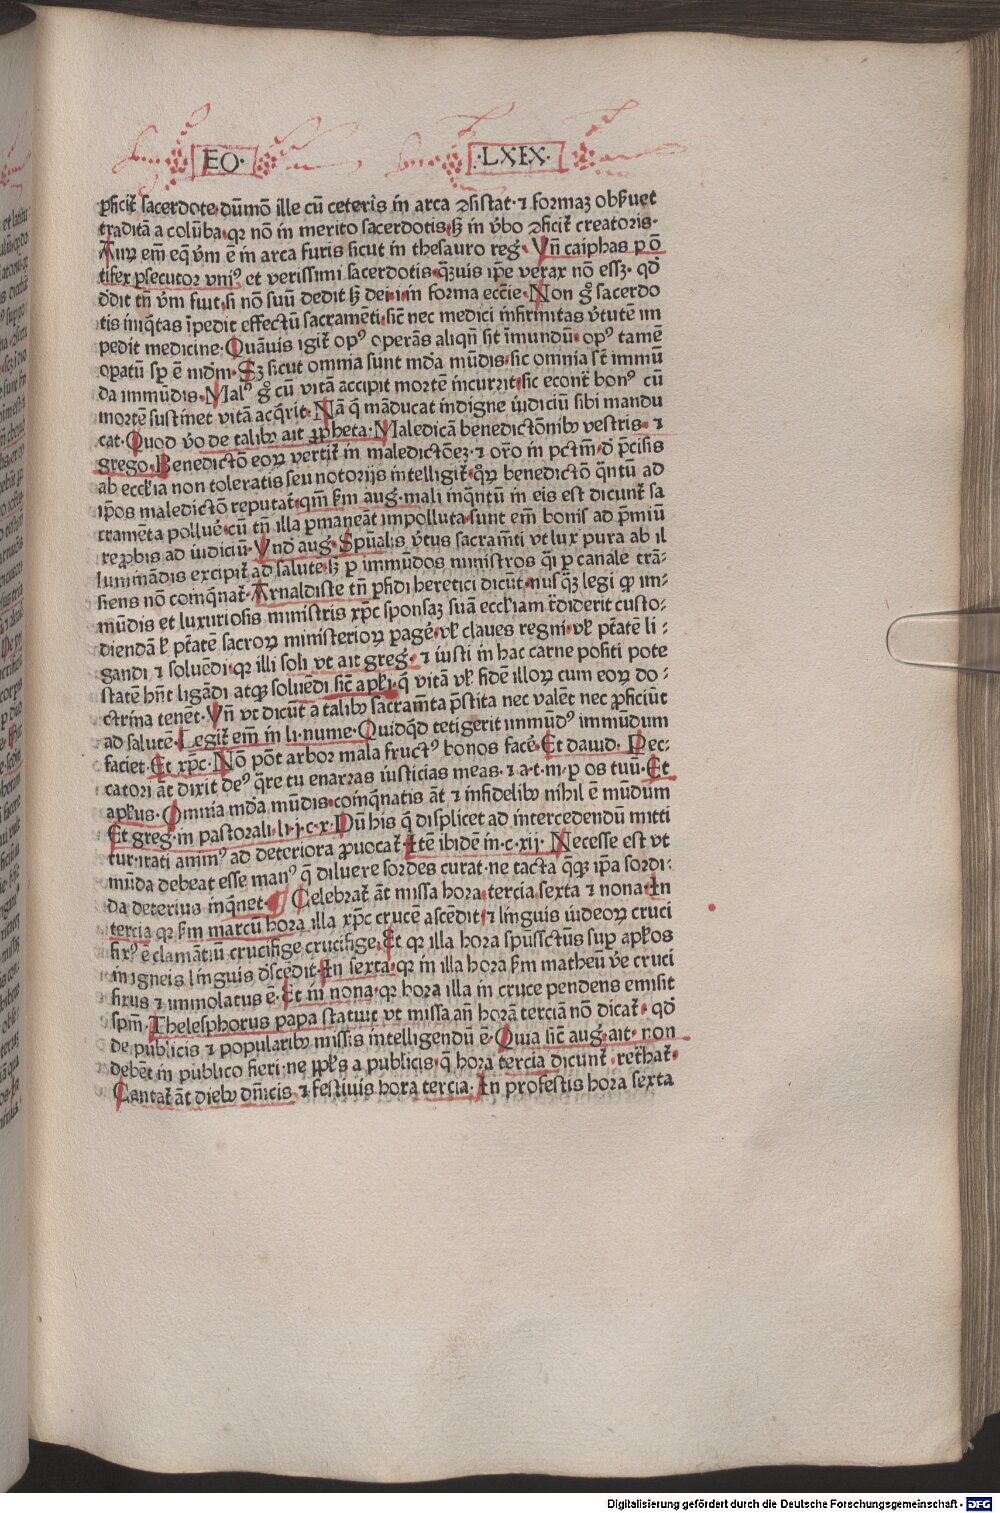 EO·
·LXIX·
ꝑficit᷑ sacerdote·dūmō ille cū ceteris in arca ꝯsistat·⁊ formaꝫ obẜuet
traditā a colūba·qꝛ nō in merito sacerdotis·sꝫ in v̄bo ꝯficit᷑ creatoris·
Auꝝ em̄ eq̄ v̄m ē in arca furis sicut in thesauro reg̃· Vn̄ caiphas pō
tifex ꝑsecutor vniꝰ et verissimi sacerdotis·q̄ꝫuis ip̄e verax nō essꝫ·qd̄
dedit tn̄ v̄m fuit·si nō suū dedit sꝫ dei·i·in forma eccl̄ie·Non gͦ sacerdo
tis iniq̄tas īpedit effectū sacramēti·sic̄ nec medici infirmitas v̄tutē im
pedit medicine·Quāuis igit᷑ opꝰ operās aliqn̄ sit īmundū·opꝰ tamē
opatū sꝑ ē mūdm̄·Sꝫ sicut omnia sunt mūda mūdis·sic omnia st̄ immū
da immūdis·Malꝰ gͦ cū vitā accipit mortē incurrit·sic econt᷑ bonꝰ cū
mortē sustinet vitā acq̄rit·Nā q̄ māducat indigne iudiciū sibi mandu
cat·Quod v̄o de talibꝫ ait ꝓpheta·Maledicā benedictōnibꝫ vestris·⁊
grego·Benedictō eoꝝ vertit᷑ in maledictōeꝫ·⁊ or̄o in pctm̄·d̄ p̄cisis
ab eccl̄ia non toleratis seu notorijs intelligit᷑·qͦꝝ benedictō q̄ntū ad
ip̄os maledictō reputat᷑·qm̄ ẜm aug̃·mali inq̄ntū in eis est dicunt᷑ sa
cramēta polluē·cū tn̄ illa ꝑmaneāt impolluta·sunt em̄ bonis ad p̄miū
reprobis ad iudiciū·Vnd̄ aug̃·Spūalis v̄tus sacram̄ti vt lux pura ab il
luminādis excipit᷑ ad salutē·sꝫ ꝑ immūdos ministros q̄i ꝑ canale trā⸗
siens nō comq̄nat᷑·Arnaldiste tn̄ ꝑfidi heretici dicūt·nusq̄ꝫ legi qͩ im⸗
mūdis et luxuriosis ministris xp̄c sponsaꝫ suā eccl̄iam tͣdiderit custo⸗
diendā ł ptātē sacroꝝ ministerioꝝ ꝑagē·vł claues regni·vł ptātē li⸗
gandi ⁊ soluēdi·qꝛ illi soli vt ait greg̃·⁊ iusti in hac carne positi pote
statē hn̄t ligādi atqꝫ soluēdi sic̄ apłi·q̄ vitā vł fidē illoꝝ cum eoꝝ do⸗
ctrina tenēt·Vn̄ vt dicūt a talibꝫ sacram̄ta p̄stita nec valēt nec ꝓficiūt
ad salutē·Legit᷑ em̄ in li·nume·Quidqd̄ tetigerit immūdꝰ immūdum
faciet·Et xp̄c·Nō pōt arbor mala fructꝰ bonos facē·Et dauid·Pec⸗
catori āt dixit deꝰ qͣre tu enarras iusticias meas·⁊ a·t·m·ꝑ os tuū·Et
apłus·Omnia mūda mūdis·coinq̄natis āt ⁊ infidelibꝫ nihil ē mūdum
Et greg̃·in pastorali·li·j·c·x·Dū his q̄ displicet ad intercedendū mitti
tur·irati animꝰ ad deteriora ꝓuocat᷑·Itē ibidē in·c·xij·Necesse est vt
mūda debeat esse manꝰ q̄ diluere sordes curat·ne tacta q̄qꝫ ip̄a sordi⸗
da deterius inq̄net·Celebrat᷑ āt missa hora·tercia·sexta ⁊ nona·In
tercia qꝛ ẜm marcū hora illa xp̄c crucē ascēdit·⁊ linguis iudeoꝝ cruci
fixꝰ ē clamātiū crucifige crucifige·Et qꝛ illa hora spūssctūs suꝑ apłos
in igneis linguis d̄scēdit·In sexta·qꝛ in illa hora ẜm matheū v̄e cruci
fixus ⁊ immolatus ē·Et in nona·qꝛ hora illa in cruce pendens emisit
spm̄·Thelesphorus papa statuit vt missa an̄ horā terciā nō dicat᷑·qd̄
de publicis ⁊ popularibꝫ missis intelligendū ē·Quia sic̄ aug̃·ait·non
debēt in publico fieri·ne ꝓpłs a publicis·q̄ hora tercia dicunt᷑·ret᷑hat᷑·
Cantat᷑ āt diebꝫ dn̄icis ⁊ festiuis hora tercia·In profestis hora sexta
Digitalisierung gefördert durch die Deutsche Forschungsgemeinschaft - DFG